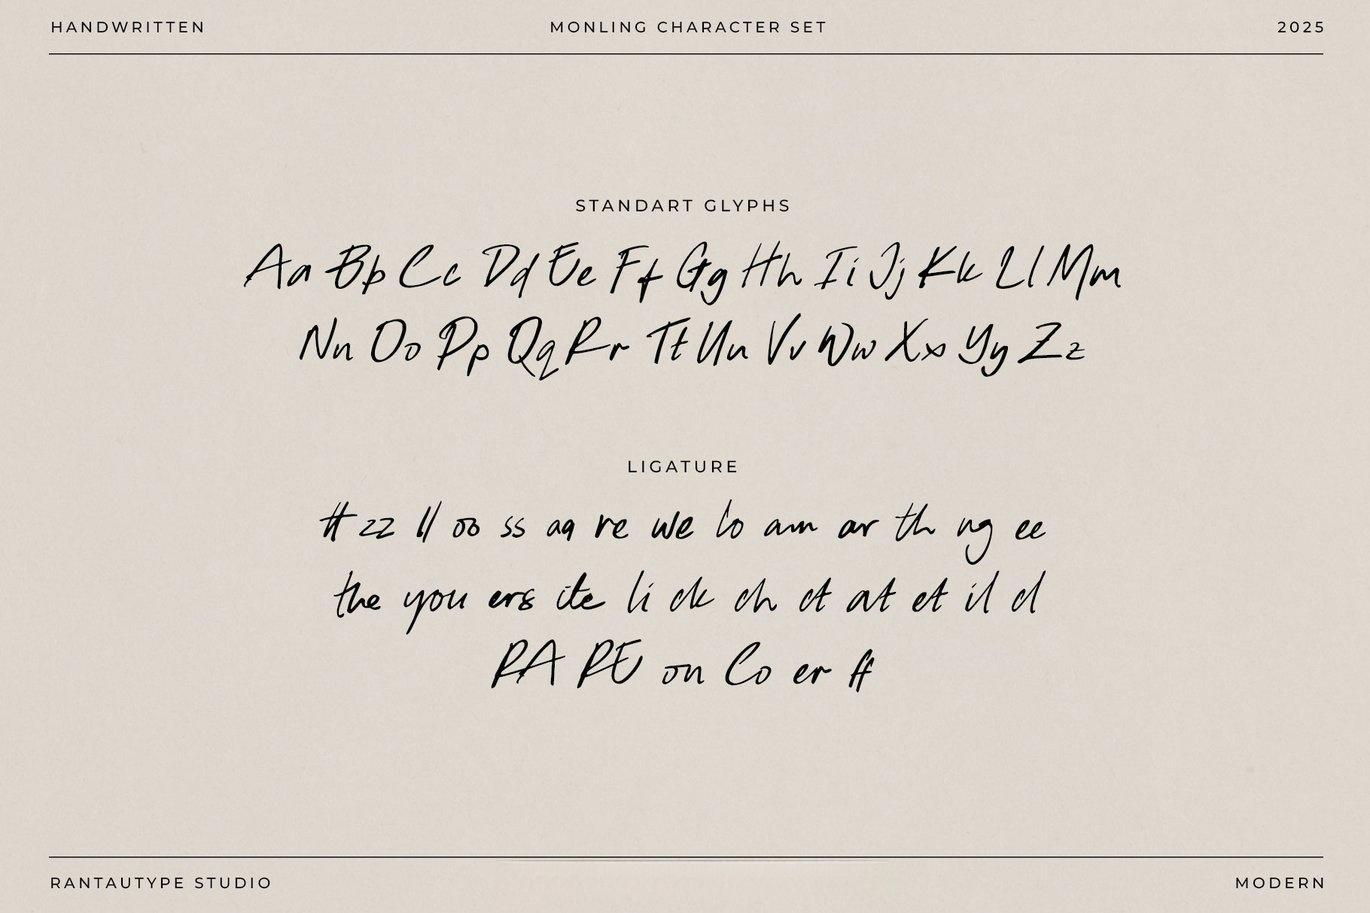 HANDWRITTEN MONLING CHARACTER SET 2025
STANDART GLYPHS
Aa Bb Cc Dd Ee Ff Gg Hh Ii Jj Kk Ll Mm
Nn Oo Pp Qq Rr Tt Uu Vv Ww Xx Yy Zz
LIGATURE
tt zz ll oo ss aa re we lo am ar th ng ee
the you ers ite li ck ch ct at et il cl
RA RE on Co er ff
RANTAUTYPE STUDIO MODERN